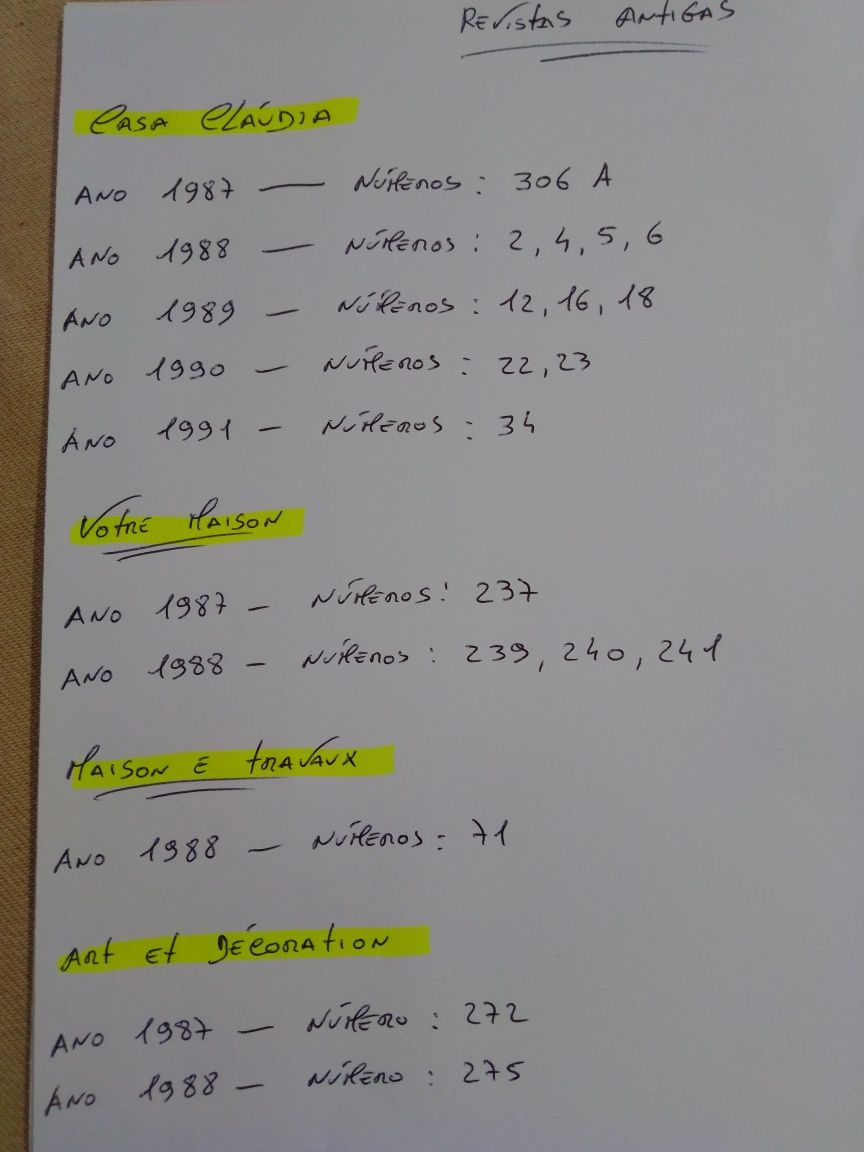 REVISTAS ANTIGAS
CASA CLÁUDIA
ANO 1987 — NÚMEROS: 306 A
ANO 1988 — NÚMEROS: 2, 4, 5, 6
ANO 1989 — NÚMEROS: 12, 16, 18
ANO 1990 — NÚMEROS: 22, 23
ANO 1991 — NÚMEROS: 34
VOTRE MAISON
ANO 1987 — NÚMEROS: 237
ANO 1988 — NÚMEROS: 239, 240, 241
MAISON E TRAVAUX
ANO 1988 — NÚMEROS: 71
ART ET DÉCORATION
ANO 1987 — NÚMERO: 272
ANO 1988 — NÚMERO: 275